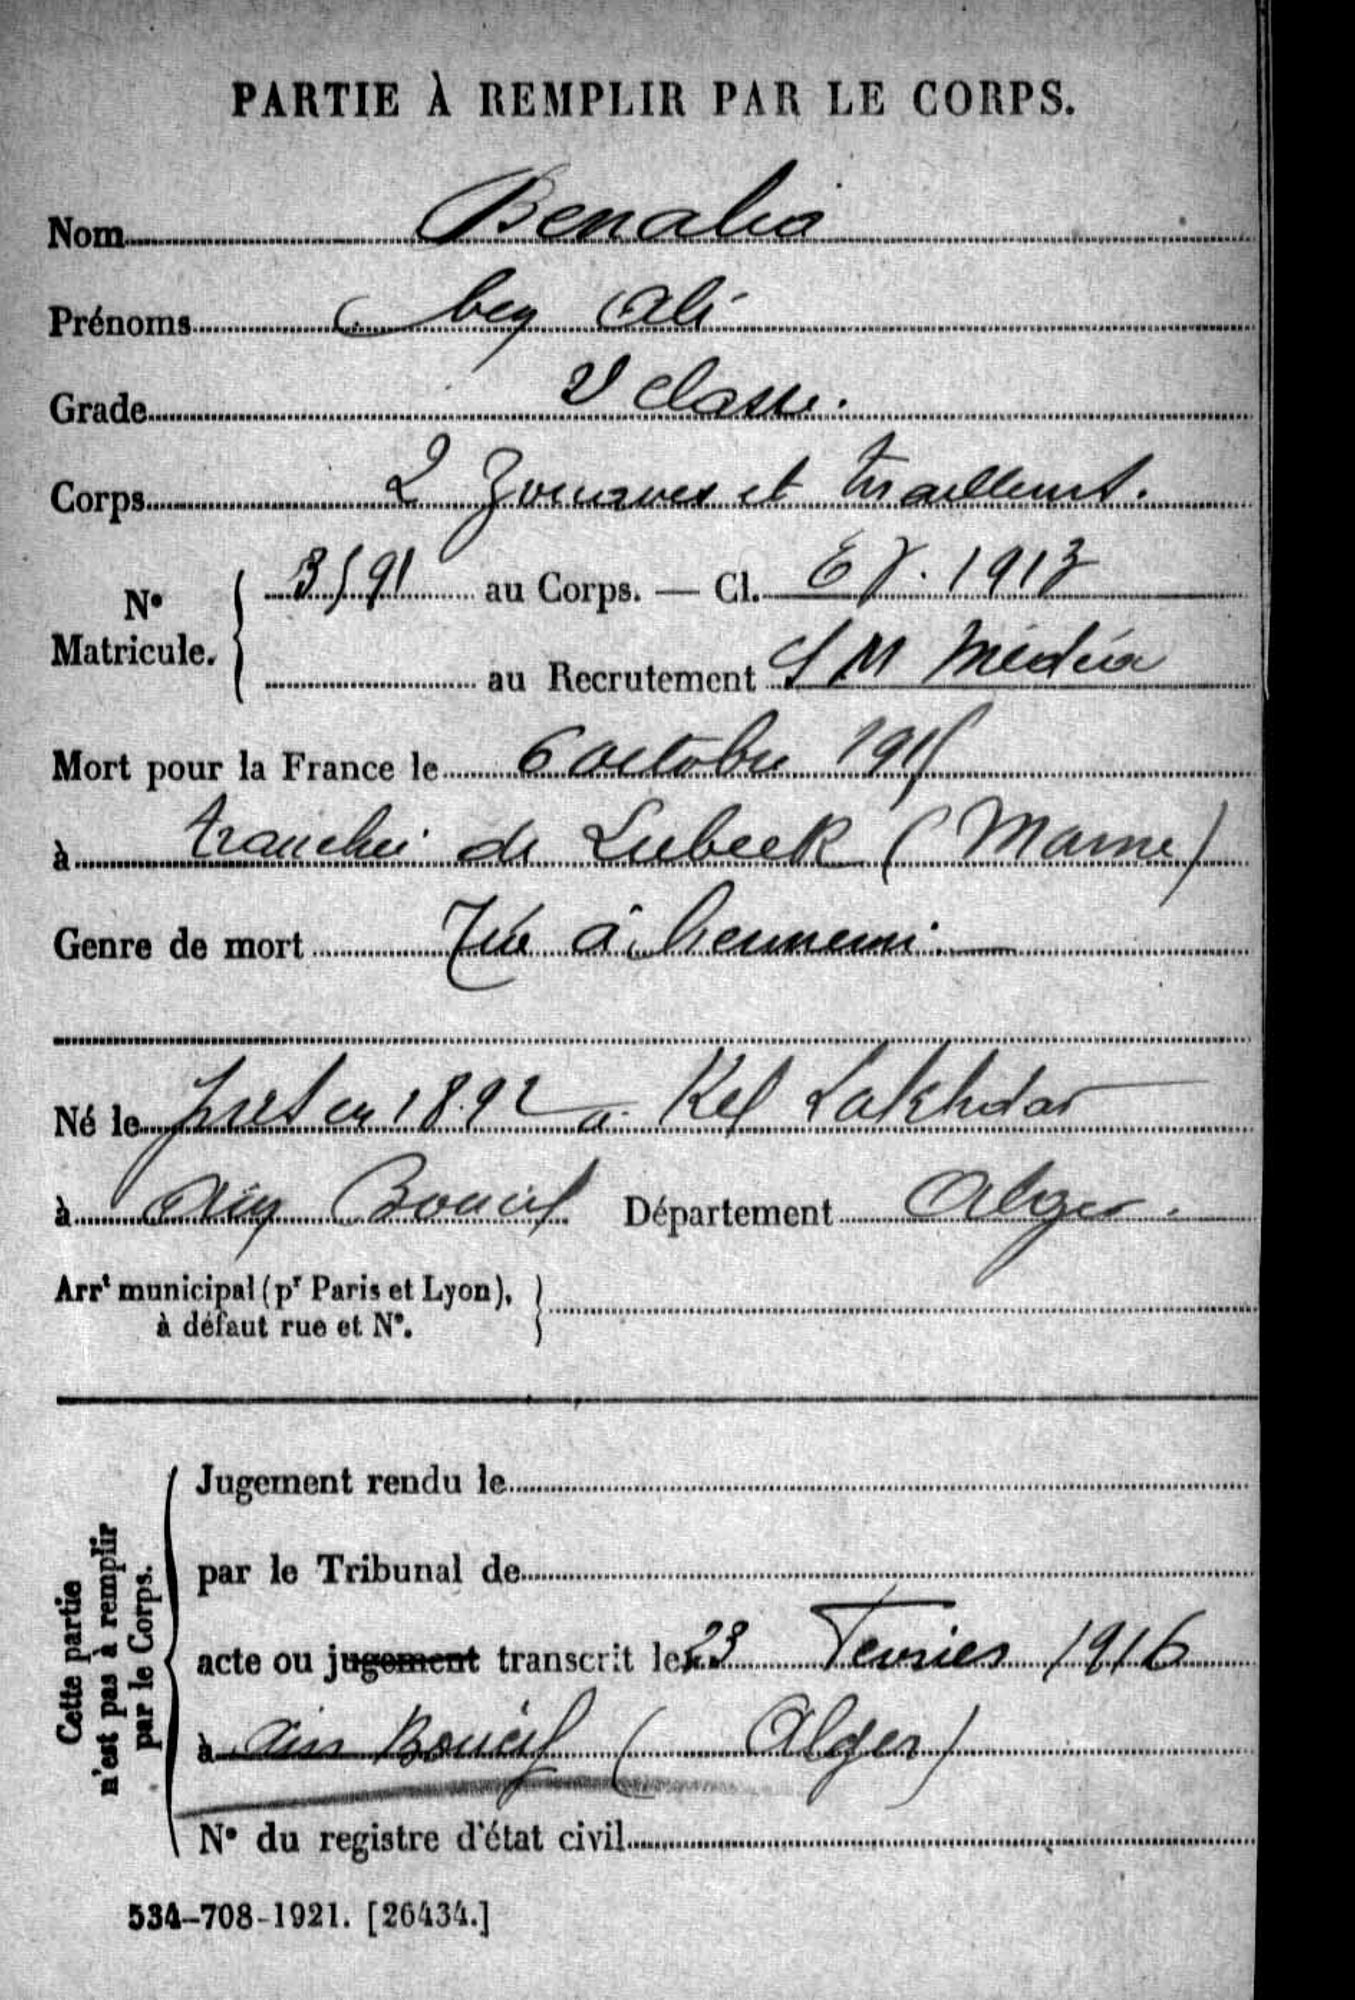 PARTIE À REMPLIR PAR LE CORPS.
Nom Benalia
Prénoms ben Ali
Grade 2e classe.
Corps 2 Zouaves et tirailleurs.
No Matricule. 3591 au Corps. — Cl. E V. 1913
au Recrutement S M Médéa
Mort pour la France le 6 octobre 1915
à tranchée de Lubeck (Marne)
Genre de mort Tué à l'ennemi
Né le pres en 1892 a Kef Lakhdar
à Ain Boucif Département Alger.
Arrt municipal (pr Paris et Lyon),
à défaut rue et No.
Cette partie
n'est pas à remplir
par le Corps.
Jugement rendu le
par le Tribunal de
acte ou jugement transcrit le 23 Fevrier 1916
à Ain Boucif (Alger)
No du registre d'état civil
534-708-1921. [26434.]